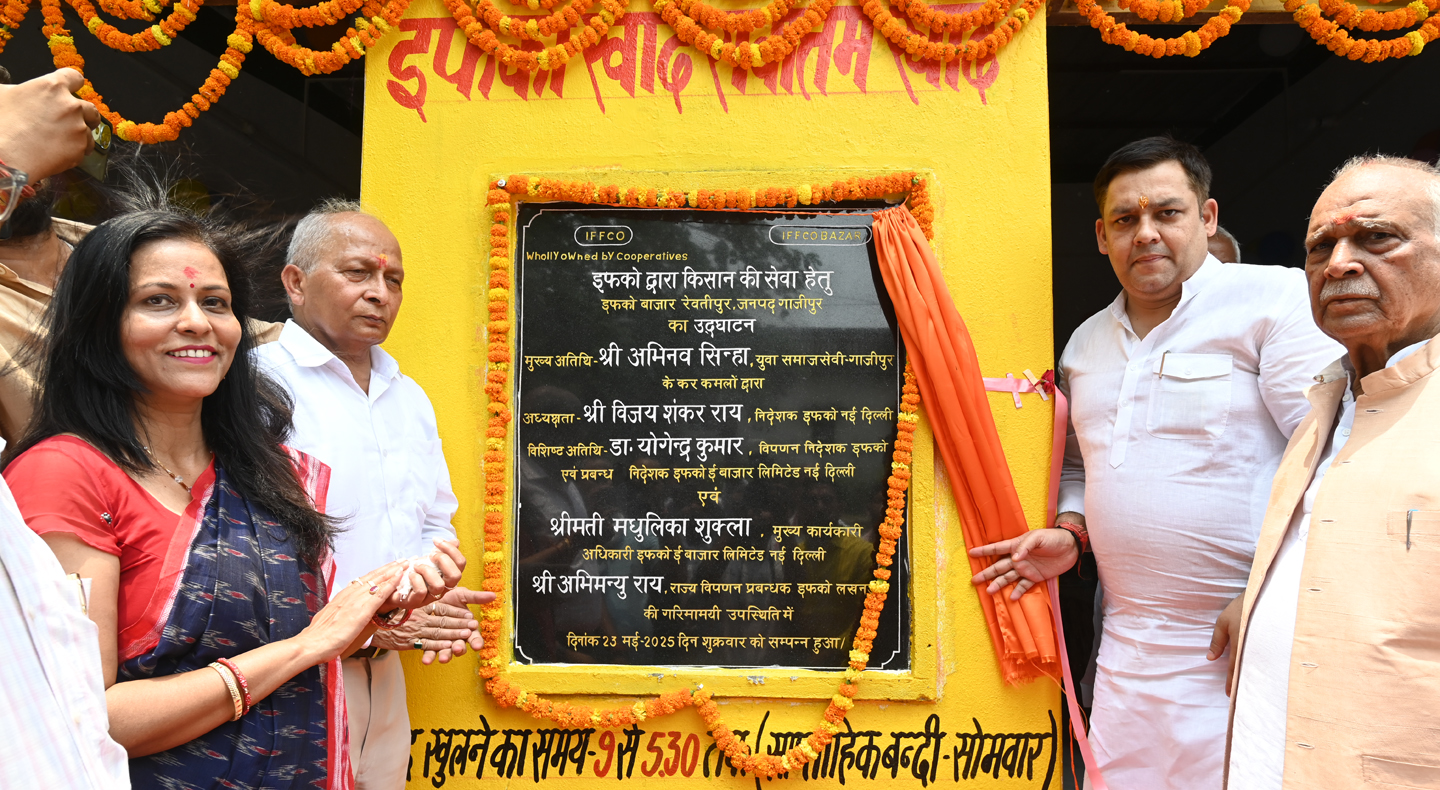 इफको स्वाद सर्वोतम स्वाद
IFFCO
IFFCO BAZAR
WhollY oWned by Cooperatives
इफको द्वारा किसान की सेवा हेतु
इफको बाजार रेवतीपुर, जनपद गाजीपुर
का उद्घाटन
मुख्य अतिथि-श्री अभिनव सिन्हा, युवा समाजसेवी-गाजीपुर
के कर कमलों द्वारा
अध्यक्षता-श्री विजय शंकर राय, निदेशक इफको नई दिल्ली
विशिष्ट अतिथि-डा. योगेन्द्र कुमार, विपणन निदेशक इफको
एवं प्रबन्ध निदेशक इफको ई बाजार लिमिटेड नई दिल्ली
एवं
श्रीमती मधुलिका शुक्ला, मुख्य कार्यकारी
अधिकारी इफको ई बाजार लिमिटेड नई दिल्ली
श्री अभिमन्यु राय, राज्य विपणन प्रबन्धक इफको लखन
की गरिमामयी उपस्थिति में
दिनांक 23 मई-2025 दिन शुक्रवार को सम्पन्न हुआ/
खुलने का समय-9 से 5.30 तक (साप्ताहिक बन्दी-सोमवार)